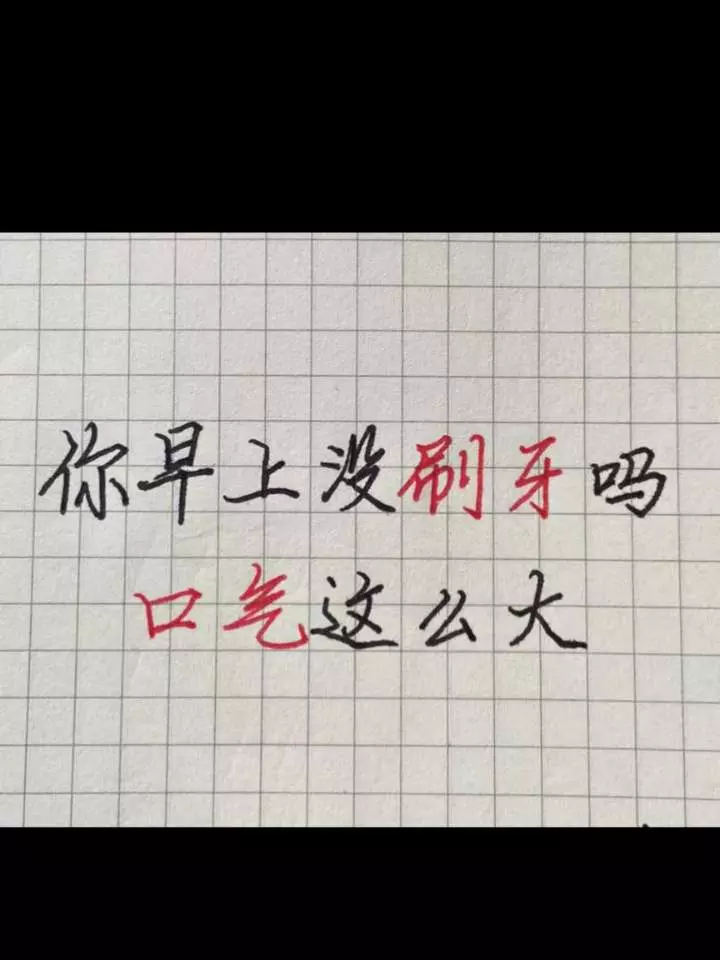 你早上没刷牙吗
口气这么大